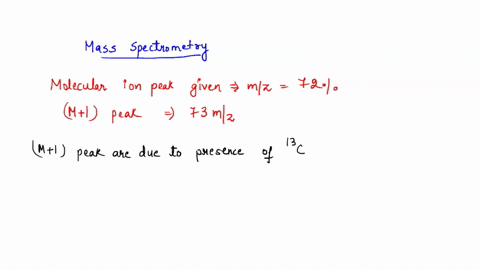 Mass Spectrometry
Molecular ion peak given ⇒ m/z = 72%.
(M+1) peak ⇒ 73 m/z
(M+1) peak are due to presence of ¹³C